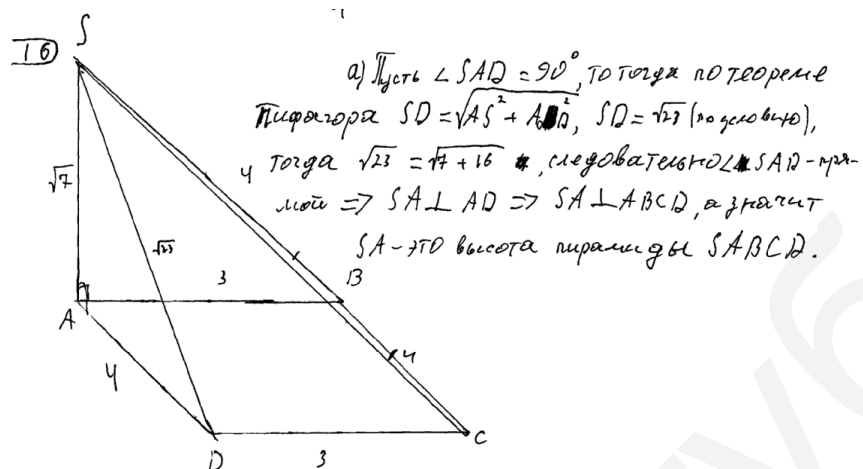 16
а) Пусть ∠SAD = 90°, то тогда по теореме
Пифагора SD = √AS² + AD², SD = √23 (по условию),
тогда √23 = √7 + 16, следовательно ∠SAD - пря-
мой => SA ⊥ AD => SA ⊥ ABCD, а значит
SA - это высота пирамиды SABCD.
S
√7
4
√23
3
B
A
4
4
D
3
C